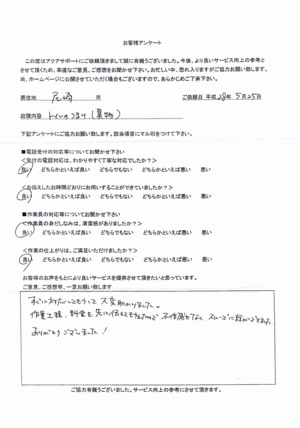 お客様アンケート
この度はアクアサポートにご依頼頂きまして誠に有難うございました。今後、より良いサービス向上の参考と
させて頂くため、率直なご意見、ご感想をお聞かせ下さい。お忙しい中、恐れ入りますがご協力お願い致します。
尚、ホームページに公開させていただく場合もございますので、あらかじめご了承下さい。
居住地 尼崎 市 ご依頼日 平成 28年 5月25日
故障内容 トイレのつまり(異物)
下記アンケートにご協力お願い致します。該当項目にマル印をつけて下さい。
■電話受付の対応等についてお聞かせ下さい
<受付の電話対応は、わかりやすく丁寧な対応でしたか?>
良い どちらかといえば良い どちらでもない どちらかといえば悪い 悪い
<お伝えしたお時間どおりにお伺いすることができていましたか?>
良い どちらかといえば良い どちらでもない どちらかといえば悪い 悪い
■作業員の対応等についてお聞かせ下さい
<作業員の身だしなみは、清潔感がありましたか?>
良い どちらかといえば良い どちらでもない どちらかといえば悪い 悪い
<作業の仕上がりは、ご満足いただけましたか?>
良い どちらかといえば良い どちらでもない どちらかといえば悪い 悪い
お客様のお声をもとにより良いサービスを提供させて頂きたいと思っています。
ご意見、ご感想等、一言お願い致します
すぐに対応してもらって大変助かりました。
作業工程、料金も先に伝えてもらえたので不信感もなく、スムーズに話ができました
ありがとうございました!
ご協力有難うございました。サービス向上の参考にさせて頂きます。